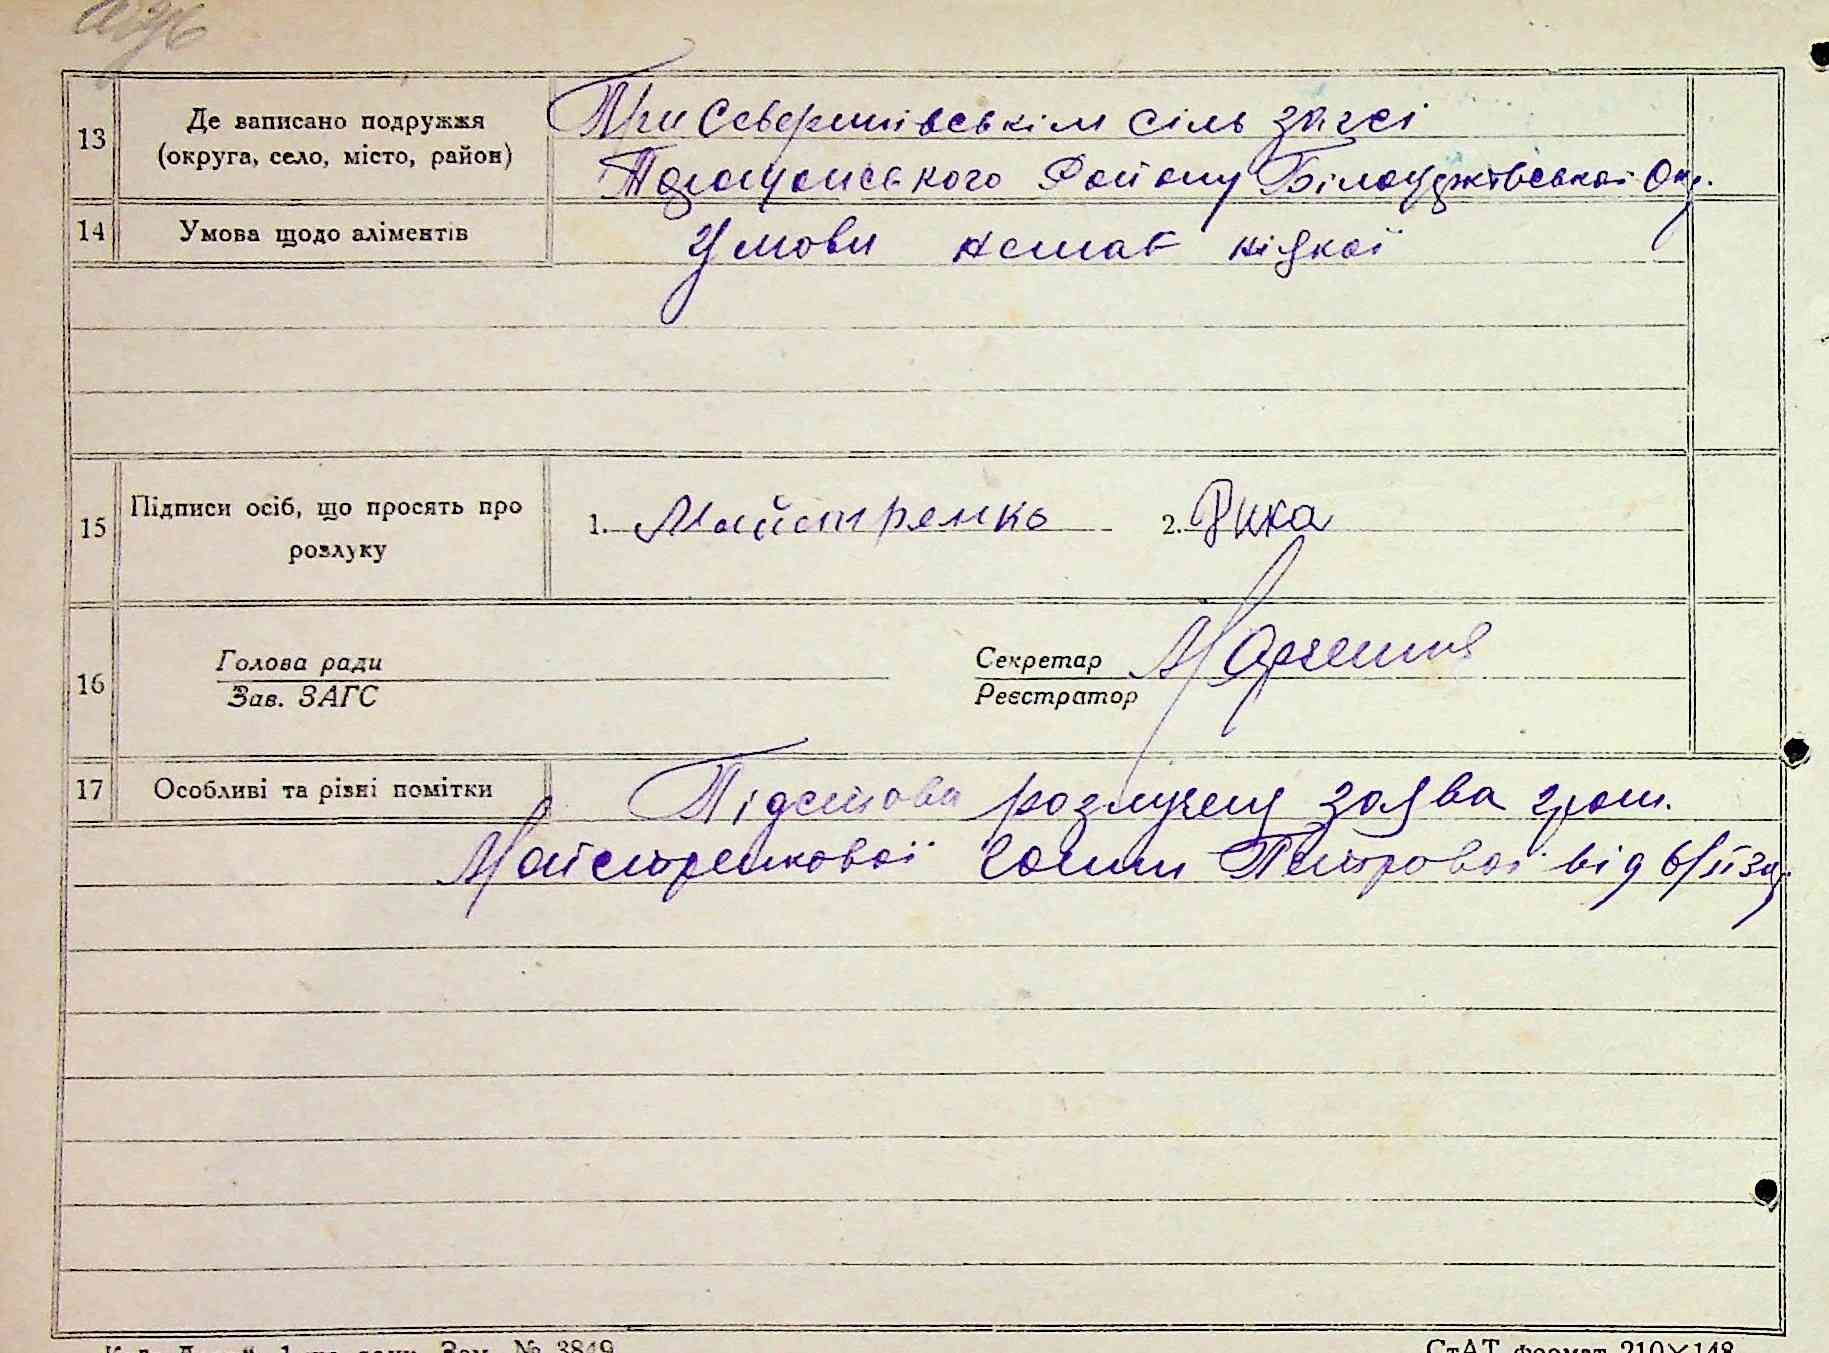 13 Де записано подружжя (округа, село, місто, район) При Северинівськім сіль загсі
Таращанського Району Білоцерківської Окр.
14 Умова щодо аліментів Умови немає ніякої
15 Підписи осіб, що просять про розлуку 1. Майстренко 2.
16 Голова ради Секретар
Зав. ЗАГС Реєстратор
17 Особливі та різні помітки Підстова розлучення заява гром.
Майстренкової Ганни Петрової від 6/II 30р.
Зам. № 3849
СтАТ формат 210×148